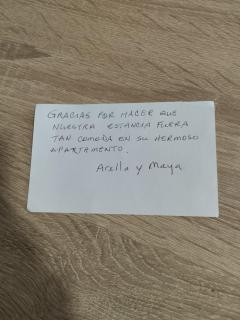 GRACIAS POR HACER QUE
NUESTRA ESTANCIA FUERA
TAN COMODA EN SU HERMOSO
APARTAMENTO.
Arella y Maya